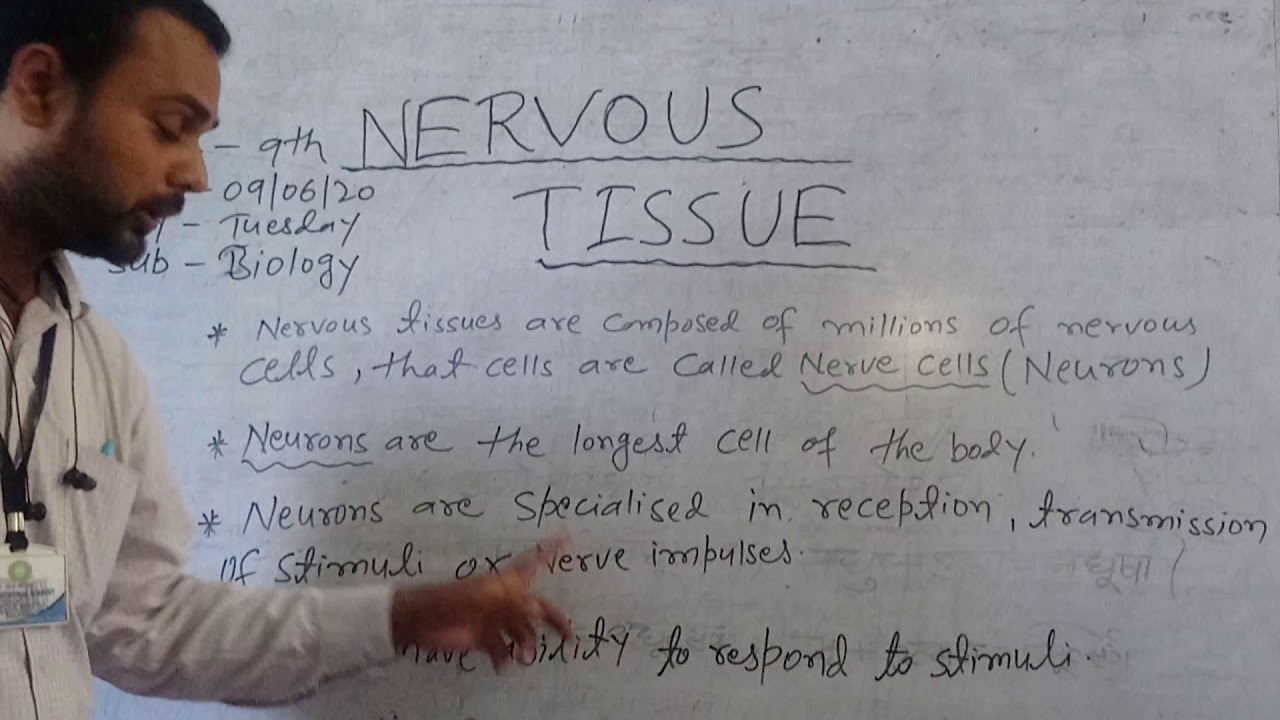 NERVOUS
TISSUE
- 9th
09/06/20
- Tuesday
Sub - Biology
* Nervous tissues are composed of millions of nervous
cells, that cells are called Nerve cells (Neurons)
* Neurons are the longest cell of the body.
* Neurons are specialised in reception, transmission
of stimuli or Nerve impulses.
have ability to respond to stimuli.